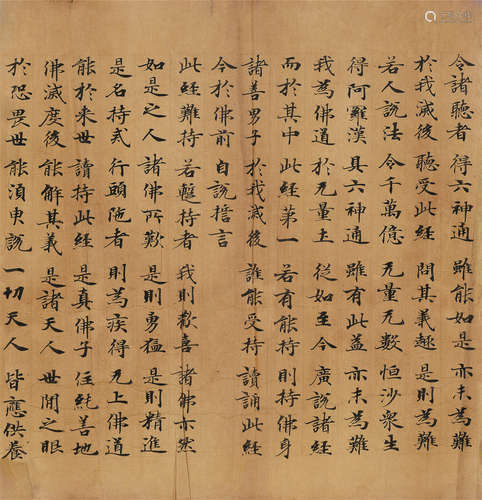 令諸聽者 得六神通 雖能如是 亦未為難
於我滅後 聽受此經 問其義趣 是則為難
若人說法 令千萬億 无量无數 恒沙衆生
得阿羅漢 具六神通 雖有此益 亦未為難
我為佛道 於无量土 從始至今 廣說諸經
而於其中 此經第一 若有能持 則持佛身
諸善男子 於我滅後 誰能受持 讀誦此經
今於佛前 自說誓言
此經難持 若暫持者 我則歡喜 諸佛亦然
如是之人 諸佛所歎 是則勇猛 是則精進
是名持戒 行頭陁者 則為疾得 无上佛道
能於来世 讀持此經 是真佛子 住純善地
佛滅度後 能解其義 是諸天人 世間之眼
於恐畏世 能須臾說 一切天人 皆應供養